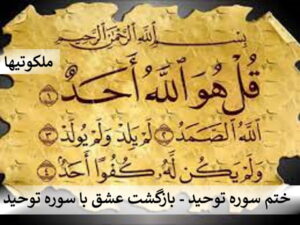 بِسْمِ اللَّهِ الرَّحْمَٰنِ الرَّحِيمِ
ملکوتیها
قُلْ هُوَ اللَّهُ أَحَدٌ ۝١
اللَّهُ الصَّمَدُ ۝٢ لَمْ يَلِدْ وَلَمْ يُولَدْ ۝٣
وَلَمْ يَكُن لَّهُ كُفُوًا أَحَدٌ ۝٤
ختم سوره توحید - بازگشت عشق با سوره توحید